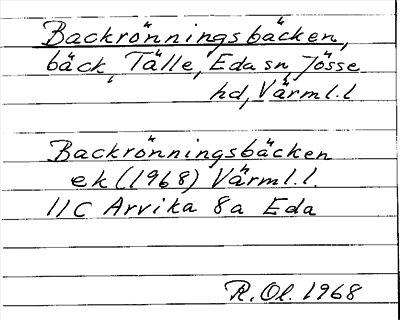 Backrönningsbäcken,
bäck, Tälle, Eda sn, Jösse
hd, Värml.l
Backrönningsbäcken
ek (1968) Värml.l.
11C Arvika 8a Eda
R. Ol. 1968